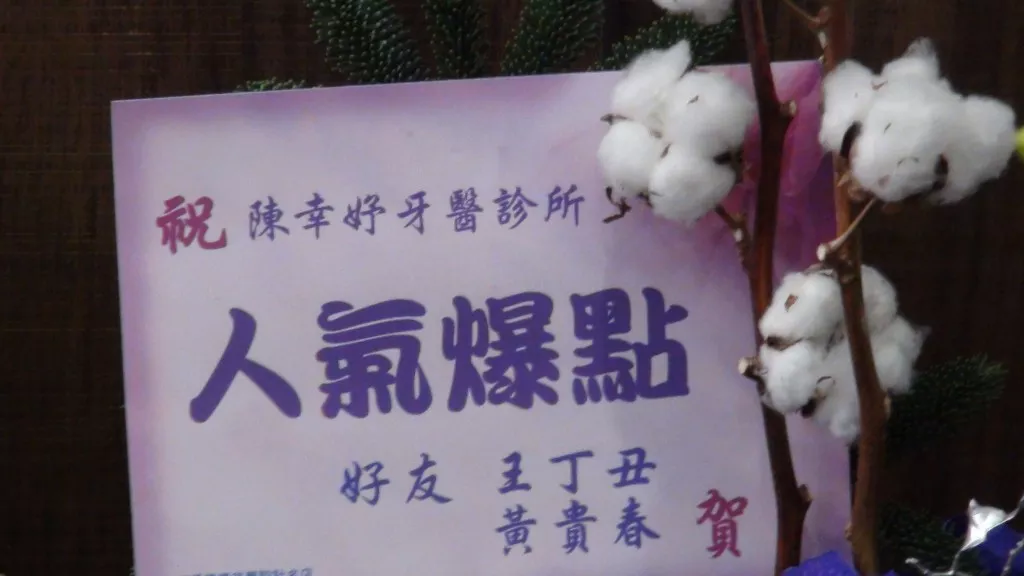 祝 陳幸妤牙醫診所
人氣爆點
好友 王丁丑
黃貴春 賀